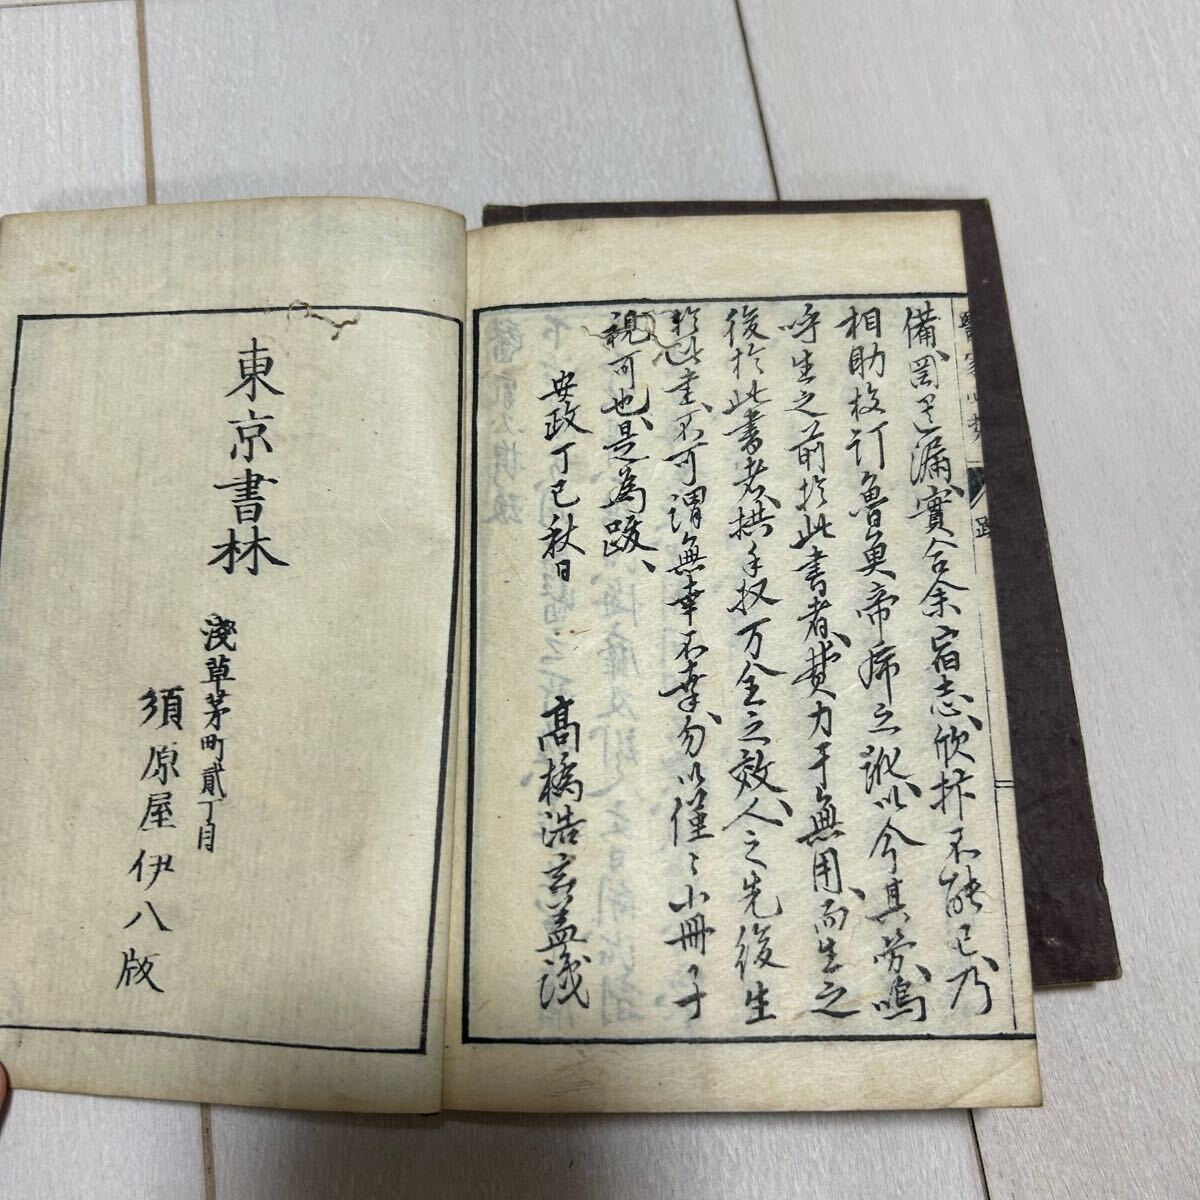 備罔遺漏實合余宿志欣抃不能已乃
相助校訂魯魚帝席之訛以分其勞嗚
呼生之前於此書者費力于無用而生之
後於此書者拱手収万全之效人之先後生
於此書不可謂無幸不幸勿以僅〻小冊子
視可也是為跋
安政丁巳秋日
髙橋浩玄益識
跋
東京書林
淺草茅町貳丁目
須原屋伊八版